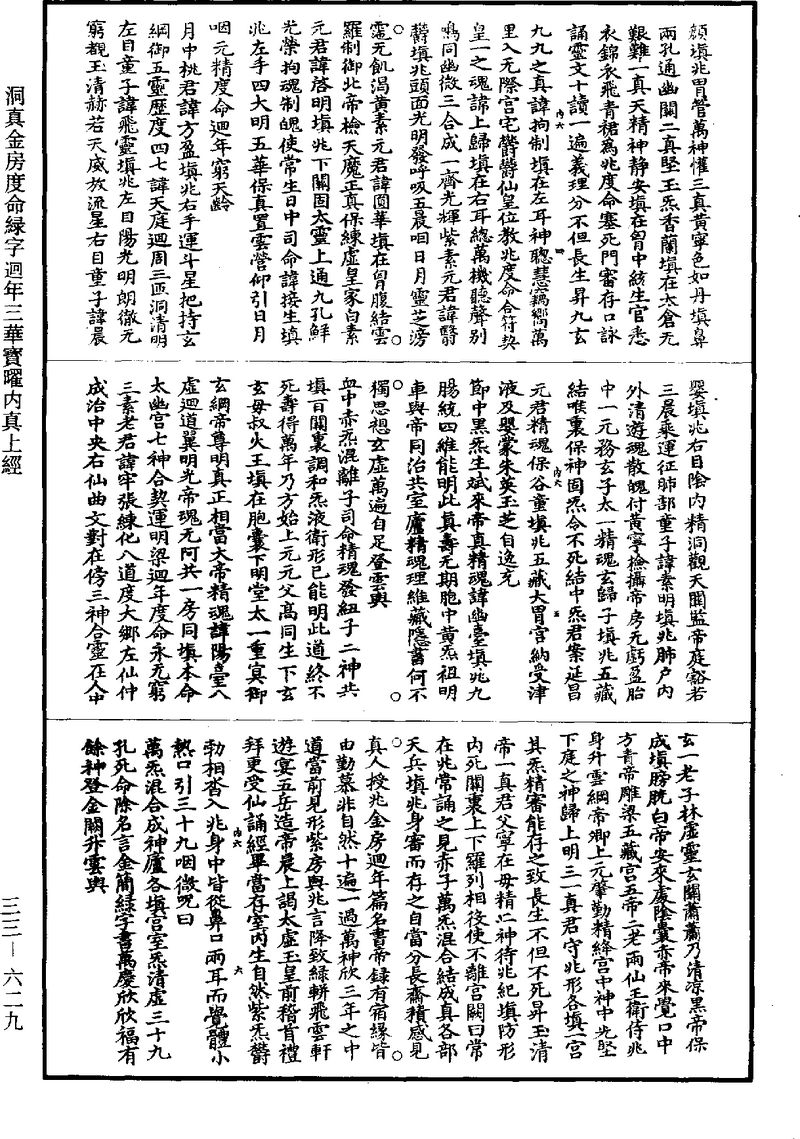 洞真金房度命緑字迴年三華寳曜内真上經
顔填兆胃管萬神懽三真黄寧色如丹填鼻
兩孔通幽關二真堅玉炁香蘭填在太倉无
艱難一真天精神静安填在胷中絃生官悉
衣錦衣飛青裙爲兆度命塞死門審存口詠
誦靈文十讀一遍義理分不但長生昇九玄
九九之真諱拘制填在左耳神聰慧竊嚮萬
里入无際宫宅欝欝仙皇位教兆度命合符契
皇一之魂諱上歸填在右耳總萬機聽聲别
鳴同幽微三合成一齊光輝紫素元君諱翳
欝填兆頭面光明發呼吸五晨咽日月靈芝滂
霊无飢渴黄素元君諱圓華填在胷腹結雲
羅制御北帝檢天魔正真保練虚皇家白素
元君諱啓明填兆下關固太靈上通九孔鮮
光榮拘魂制魄使常生日中司命諱接生填
兆左手四大明五華保真置雲營仰引日月
咽元精度命迴年窮天齡
月中桃君諱方盈填兆右手運斗星把持玄
綱御五靈歷度四七諱天庭迴周三匝洞清明
左目童子諱飛靈填兆左目陽光明朗徹元
窮覩玉清赫若天威放流星右目童子諱晨
嬰填兆右目陰内精洞觀天關監帝庭豁若
三晨乘運征肺部童子諱素明填兆肺户内
外清遊魂散魄付黄寧檢攝帝房无虧盈胎
中一元務玄子太一精魂玄歸子填兆五藏
結喉裏保神固炁令不死結中炁君案延昌
元君精魂保谷童填兆五藏大胃宫納受津
液及嬰蒙朱英玉芝自逸充
節中黑炁生斌來帝真精魂諱幽臺填兆九
腸統四維能明此真壽无期胞中黄炁祖明
車與帝同治共室廬精魂理維藏隠書何不
獨思想玄虚萬遍自足登雲輿
血中赤炁混離子司命精魂發紐子二神共
填百關裏調和炁液衛形已能明此道終不
死壽得萬年乃方始上元元父高同生下玄
玄母叔火王填在胞囊下明堂太一重冥御
玄綱帝尊明真正相當大帝精魂諱陽臺八
虚迴道翼明光帝魂无阿共一房同填本命
太幽宫七神合契運明梁迴年度命永无窮
三素老君諱牢張練化八道度大鄉左仙仲
成治中央右仙曲文對在傍三神合靈在人中
玄一老子林虚靈玄關蕭蕭乃清凉黒帝保
成填膀胱白帝安來處陰囊赤帝來覺口中
方青帝雕梁五藏宫五帝二老兩仙王衛侍兆
身升雲綱帝卿上元肇勤精絳宫中神中光堅
下庭之神歸上明三一真君守兆形各填一宫
其炁精審能存之致長生不但不死昇玉清
帝一真君父寧在毋精二神待兆紀填防形
内死關裏上下羅列相後使不離宫闕曰常
在兆常誦之見赤子萬炁混合結成真各部
天兵填兆身審而存之自當分長齋積感見
真人授兆金房迴年篇名書帝録有宿縁皆
由勤慕非自然十遍一過萬神欣三年之中
道當前見形紫房與兆言降致緑軿飛雲軒
遊宴五岳造帝晨上謁太虚玉皇前稽首禮
拜更受仙誦經畢當存室内生自然紫炁欝
勃相沓入兆身中皆從鼻口兩耳而覺體小
熱口引三十九咽微呪曰
萬炁混合成神廬各填宫室炁清虚三十九
孔死命除名言金簡緑字書萬慶欣欣福有
餘神登金闕升雲輿
三三—六二九